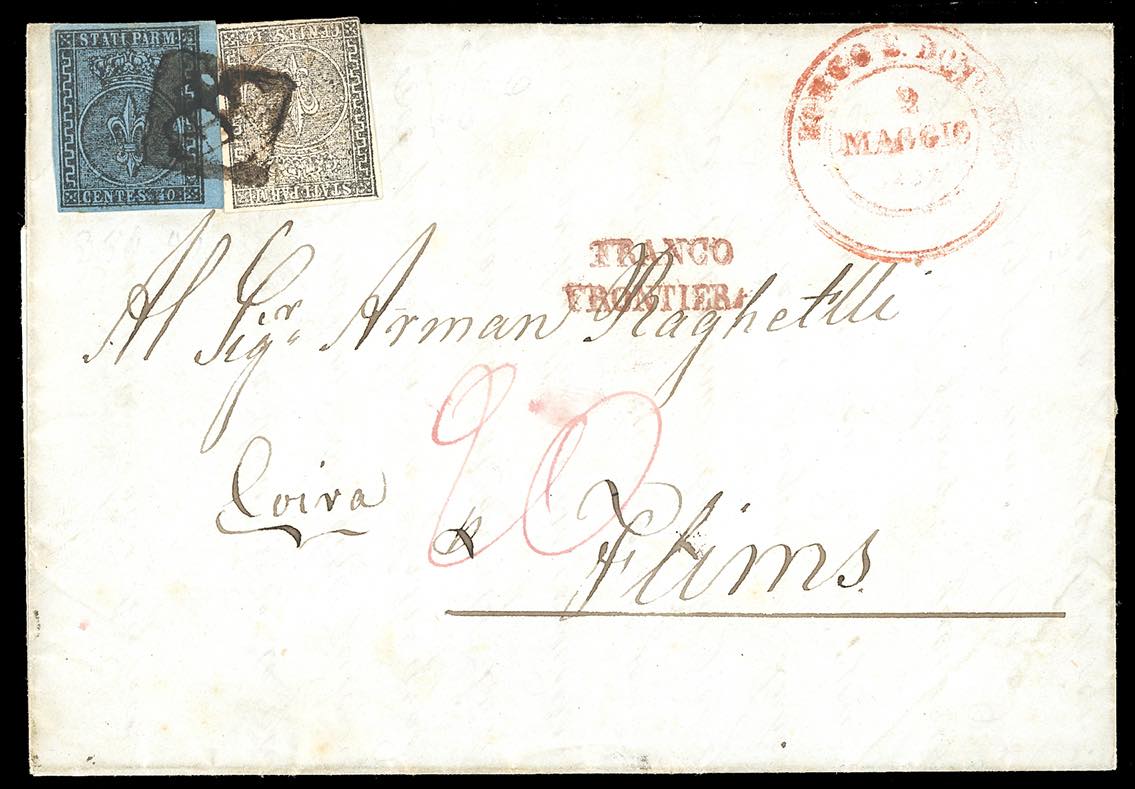 STATI PARM
CENTES. 40
CENTESIMI 10
STATI PARM
BORGO S. DONNINO
9
MAGGIO
FRANCO
FRONTIERA
Al Sigr Arman Raghettli
20
Coira
Flims